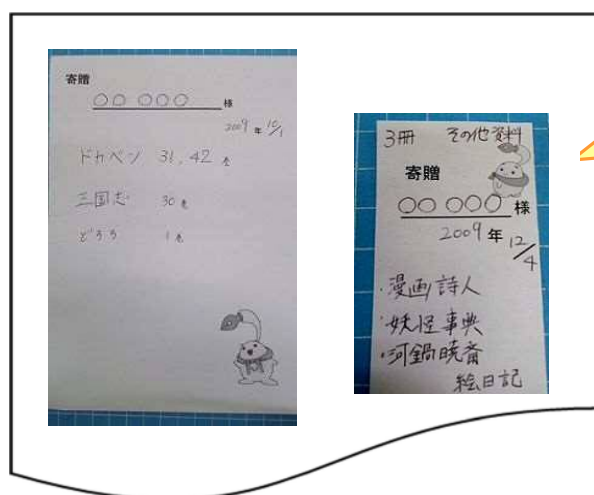 寄贈
○○ ○○○ 様
2009年 12/1
ドカベン 31, 42 巻
三国志 30 巻
どろろ 1 巻
3冊 その他 資料
寄贈
○○ ○○○ 様
2009年 12/4
・漫画詩人
・妖怪事典
・河鍋暁斎
絵日記